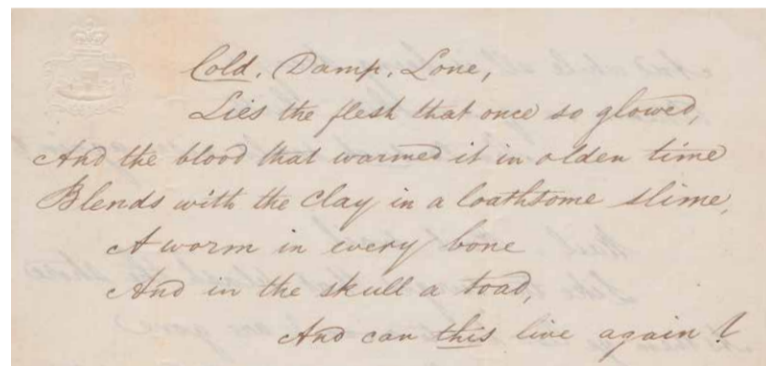 Cold, Damp, Lone,
Lies the flesh that once so glowed,
And the blood that warmed it in olden time
Blends with the clay in a loathsome slime,
A worm in every bone
And in the skull a toad,
And can this live again?